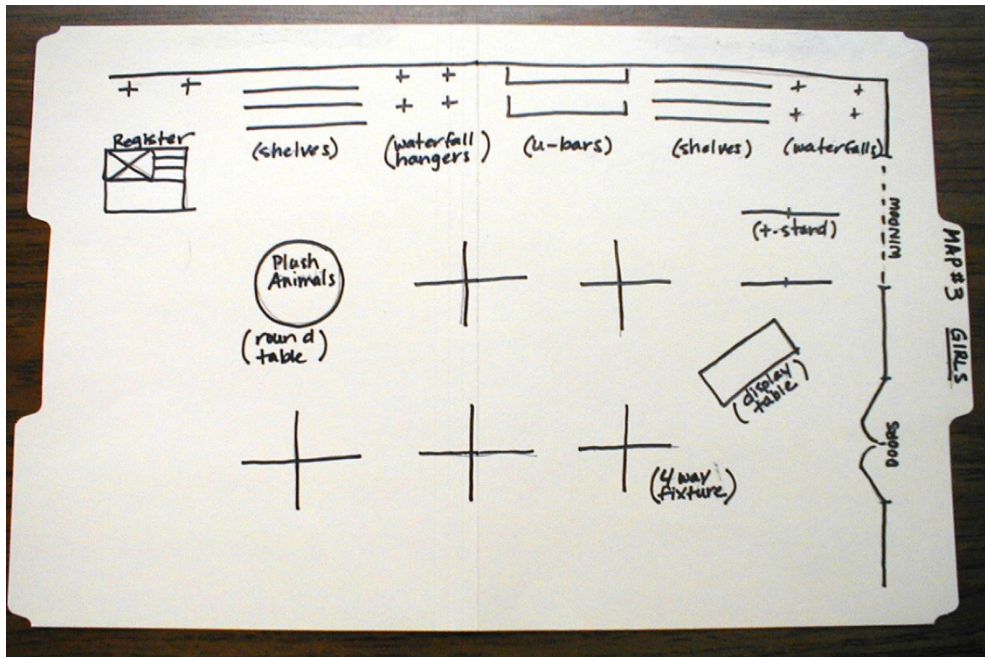 Register
(shelves)
(waterfall
hangers)
(u-bars)
(shelves)
(waterfalls)
WINDOW
(t-stand)
Plush
Animals
(round
table)
(display
table)
DOORS
(4 way
fixture)
MAP #3 GIRLS